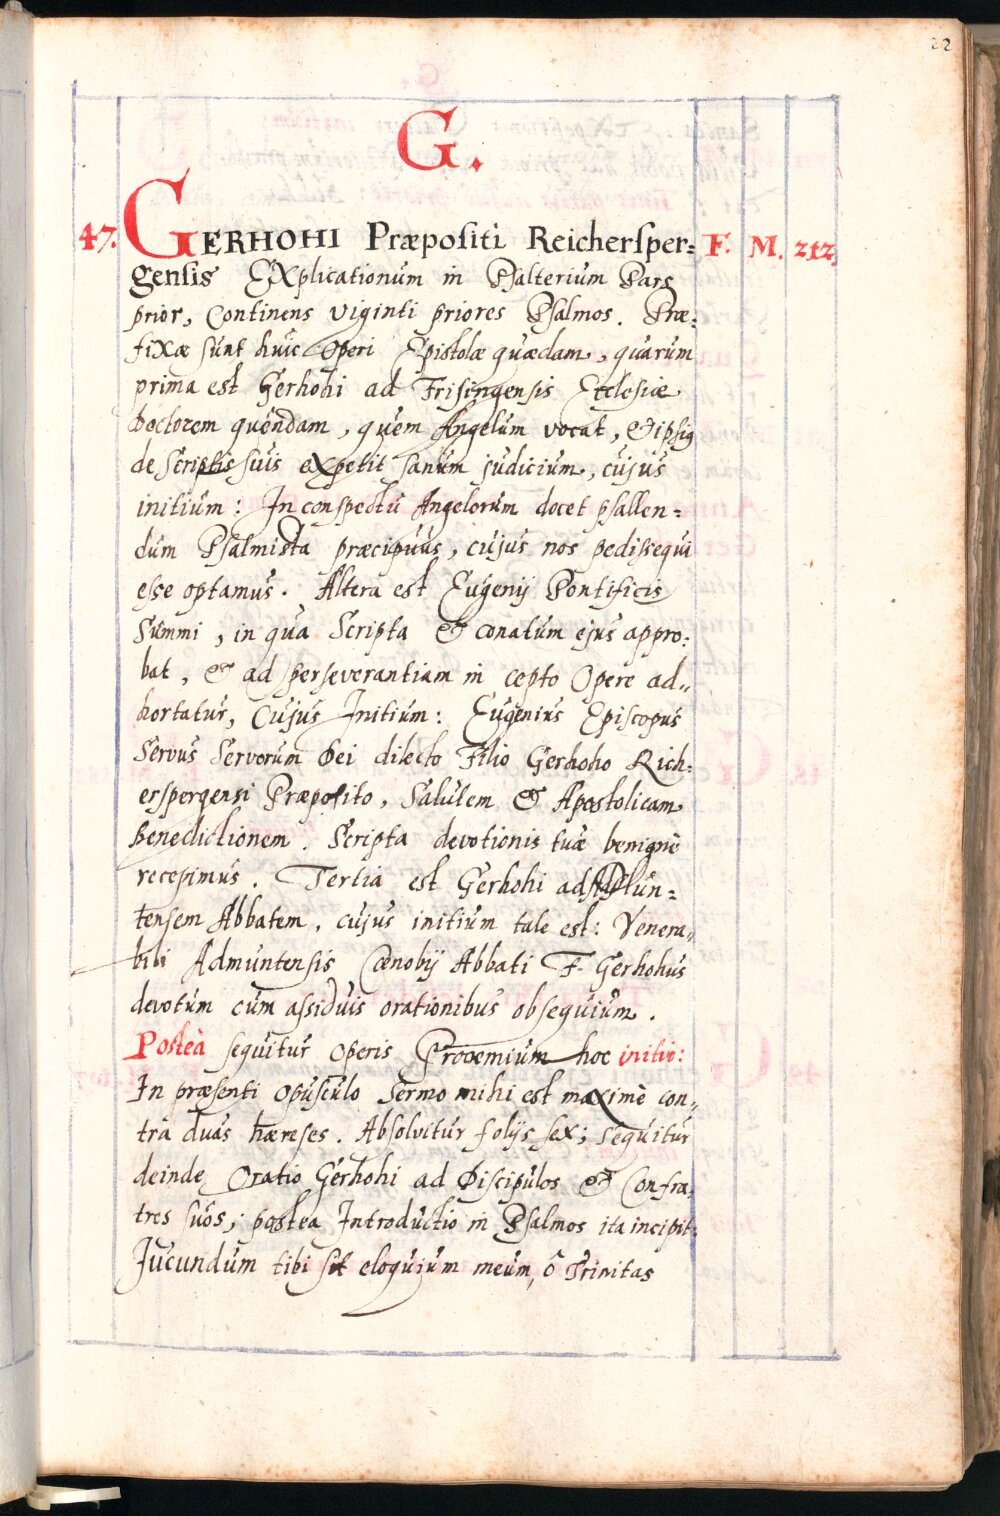 22
G.
47. GERHOHI Præpositi Reichersper= F. M. 212.
gensis Explicationum in Psalterium Pars
prior, Continens viginti priores Psalmos. Præ=
fixæ sunt huic Operi Epistolæ quædam, quarum
prima est Gerhohi ad Frisingensis Ecclesiæ
Doctorem quendam, quem Angelum vocat, & ipsiq
de scriptis suis expetit sanum judicium, cujus
initium: In conspectu Angelorum docet psallen=
dum Psalmista præcipuus, cujus nos pedissequi
esse optamus. Altera est Eugenij Pontificis
Summi, in qua Scripta & conatum ejus appro=
bat, & ad perseverantiam in cepto Opere ad=
hortatur, Cujus Initium: Eugenius Episcopus
Servus Servorum Dei dilecto Filio Gerhoho Rich=
erspergensi Præposito, Salutem & Apostolicam
Benedictionem. Scripta devotionis tuæ benignè
recepimus. Tertia est Gerhohi ad
tensem Abbatem, cujus initium tale est: Venera=
bili Admuntensis Cœnobij Abbati F. Gerhohus
devotum cum assiduis orationibus obsequium.
Posteà sequitur Operis Prooemium hoc initio:
In præsenti opusculo Sermo mihi est maximè con=
tra duas hæreses. Absolvitur folijs sex; sequitur
deinde Oratio Gerhohi ad Discipulos & Confra=
tres suos; postea Introductio in Psalmos ita incipit.
Jucundum tibi sit eloquium meum, ô Trinitas